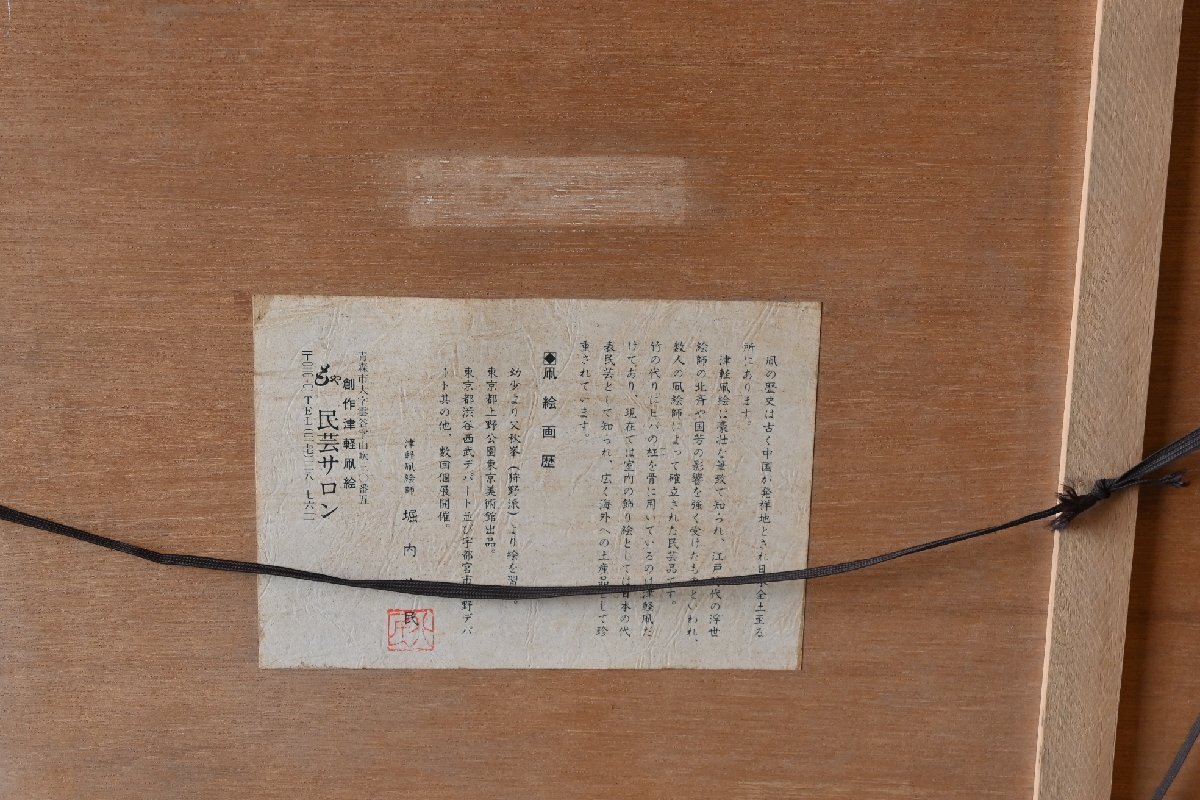 凧の歴史は古く中国が発祥地とされ日本全土至る
所にあります。
津軽凧絵は豪壮な筆致で知られ、江戸時代の浮世
絵師の北斎や国芳の影響を強く受けたものといわれ、
数人の凧絵師によって確立された民芸品です。
竹の代りにヒバの柾を骨に用いているのは津軽凧だ
けであり、現在では室内の飾り絵としては日本の代
表民芸として知られ、広く海外への土産品として珍
重されています。
◆凧絵画歴
幼少より父秋峯(狩野派)より絵を習
東京都上野公園東京美術館出品。
東京都渋谷西武デパート並び宇都宮市 野デパ
ート其の他、数回個展開催。
津軽凧絵師 堀内 民
青森市大字雲谷字山吹
創作津軽凧絵
民芸サロン
〒 TEL